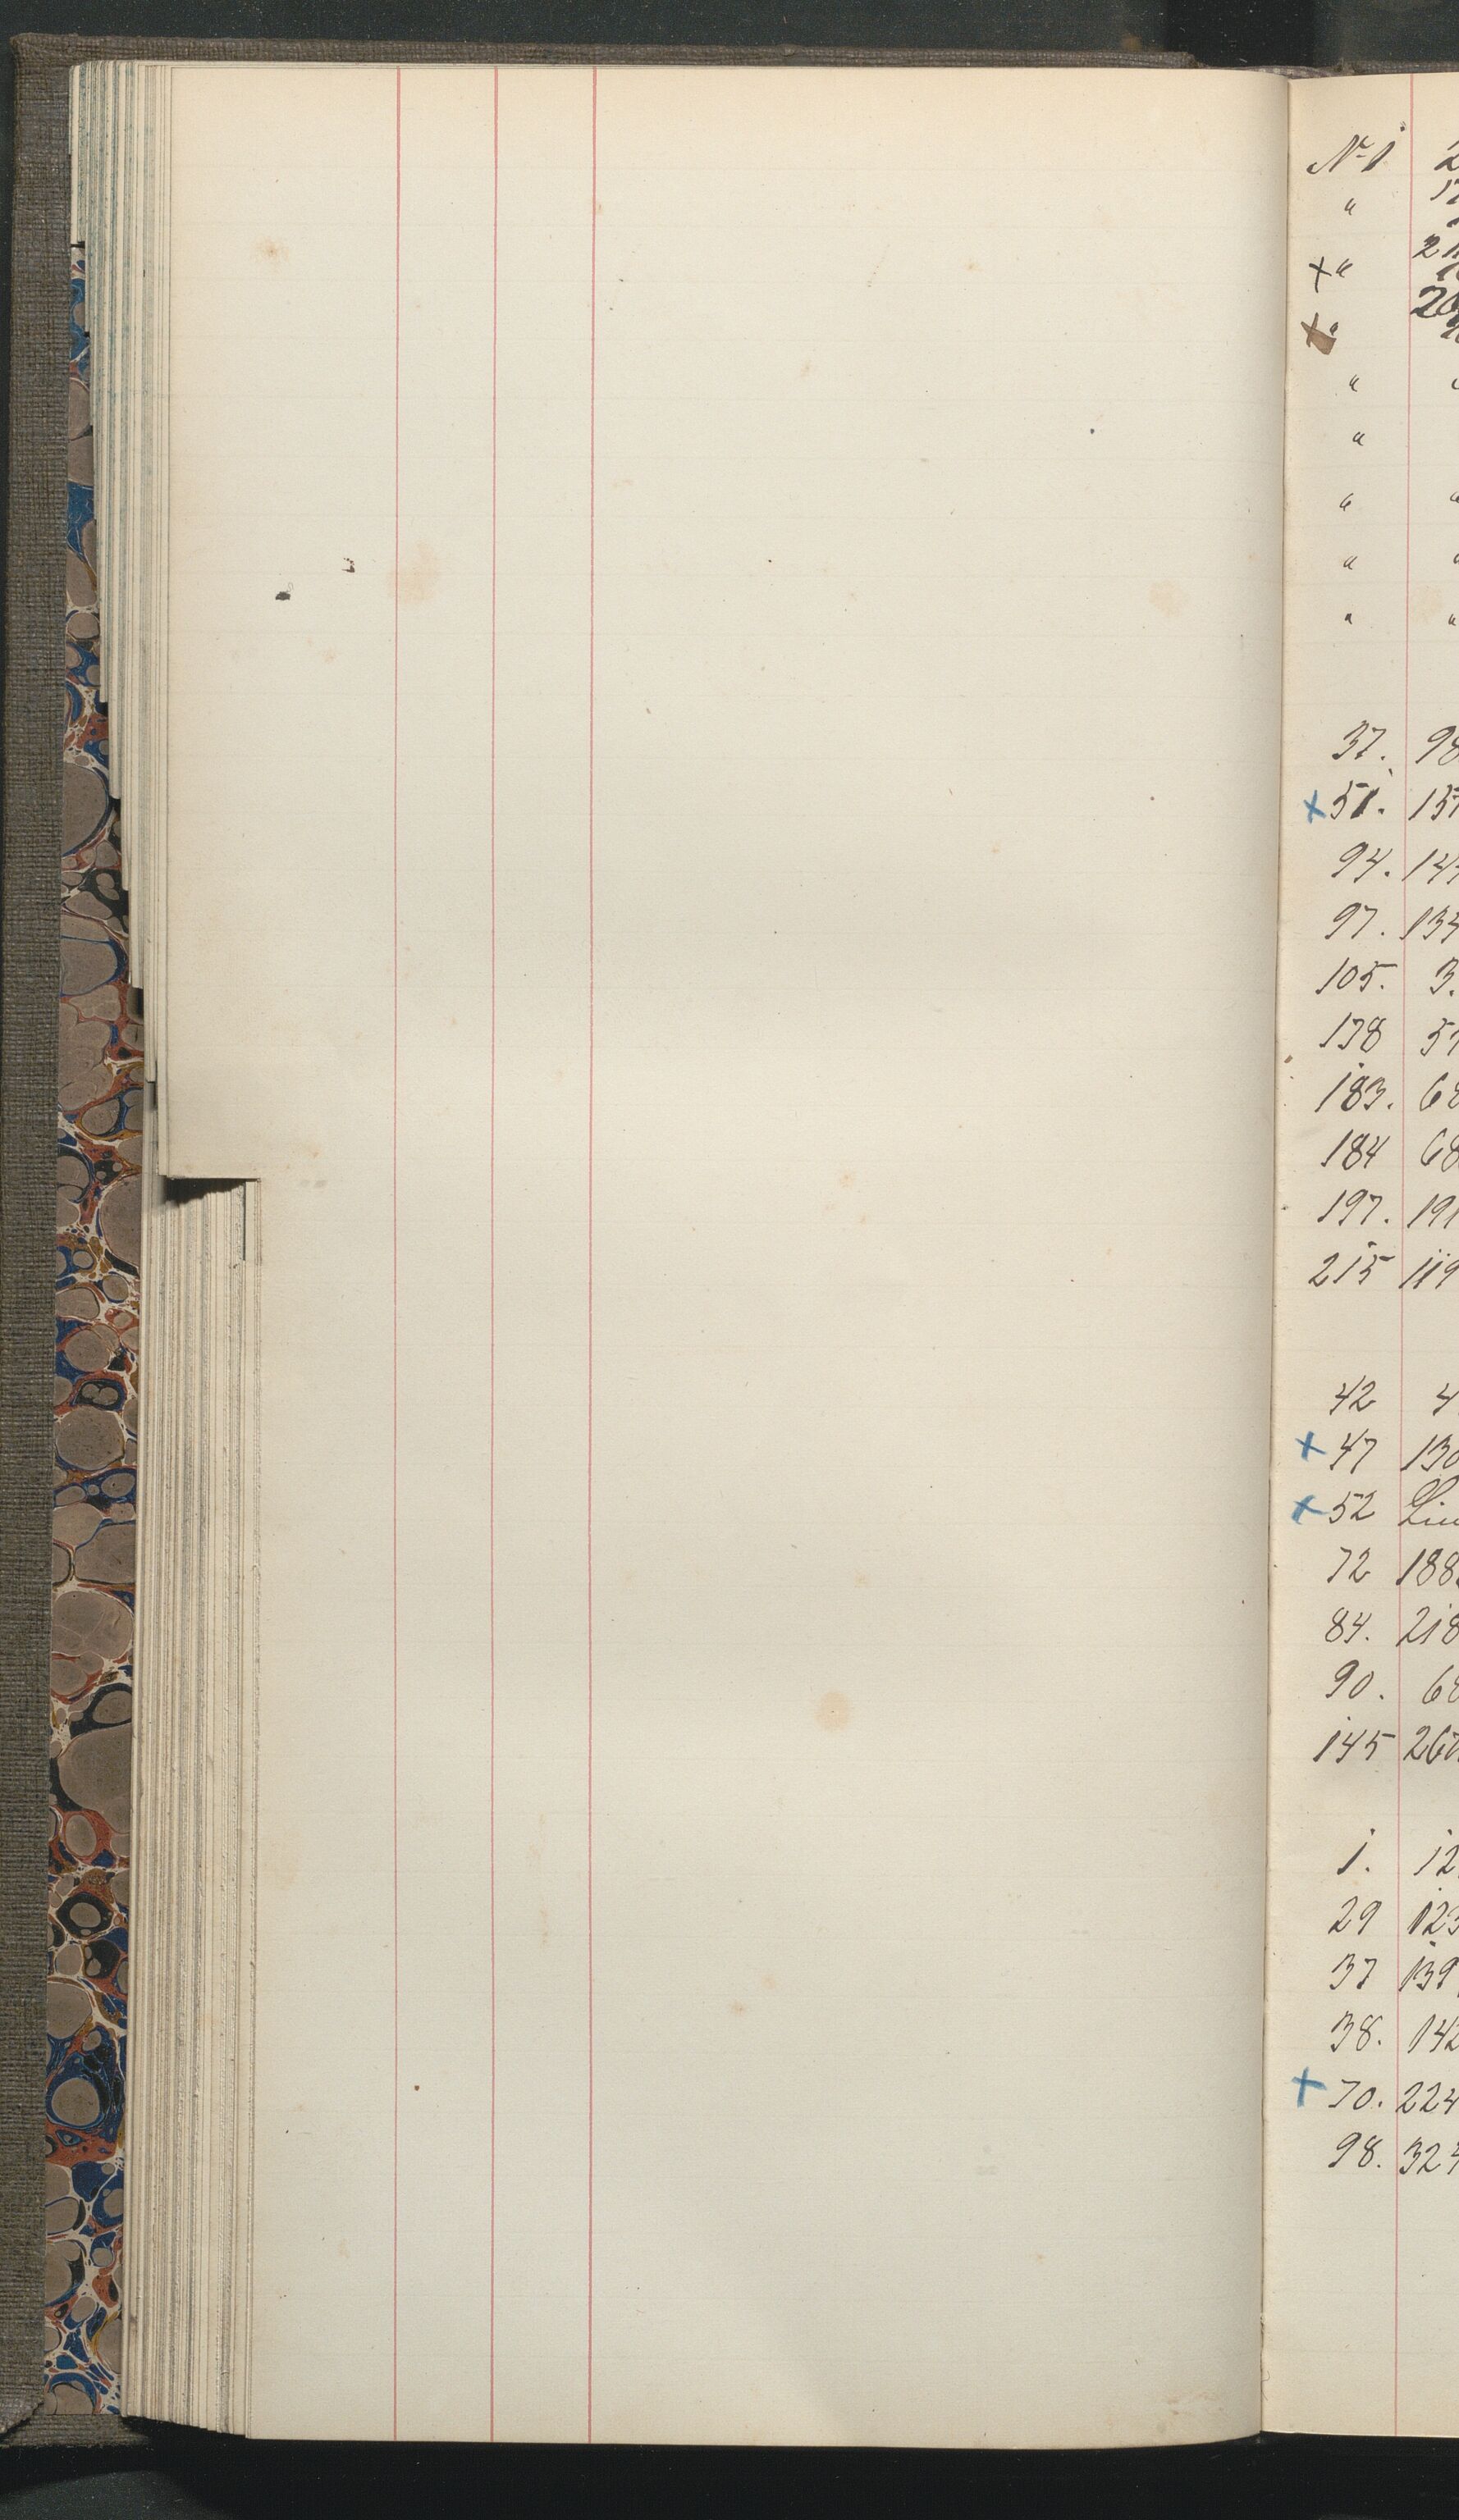 No 1 2
" 17
+ " 21
+ " 20
"
"
" "
" "
" "
37. 98
+ 51. 137
94. 144
97. 134
105. 3.
138 57
183. 68
184 68
197. 191
215 119
42 4
+ 47 130
+ 52 Lin
72 188
84. 218
90. 68
145 267
1. 12
29 123
37 139
38. 142
+ 70. 224
98. 324